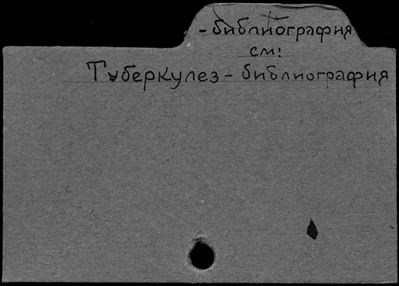 -библиография
см:
Туберкулез - библиография